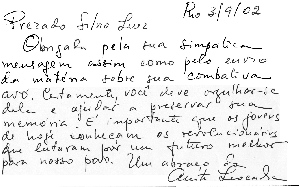 Rio 3/9/02
Prezado Silvio Luiz
Obrigada pela sua simpática
mensagem assim como pelo envio
da matéria sobre sua combativa
avó. Certamente, você deve orgulhar-se
dela e ajudar a preservar sua
memória. É importante que os jovens
de hoje conheçam os revolucionários
que lutaram por um futuro melhor
para nosso povo. Um abraço da
Anita Leocadia